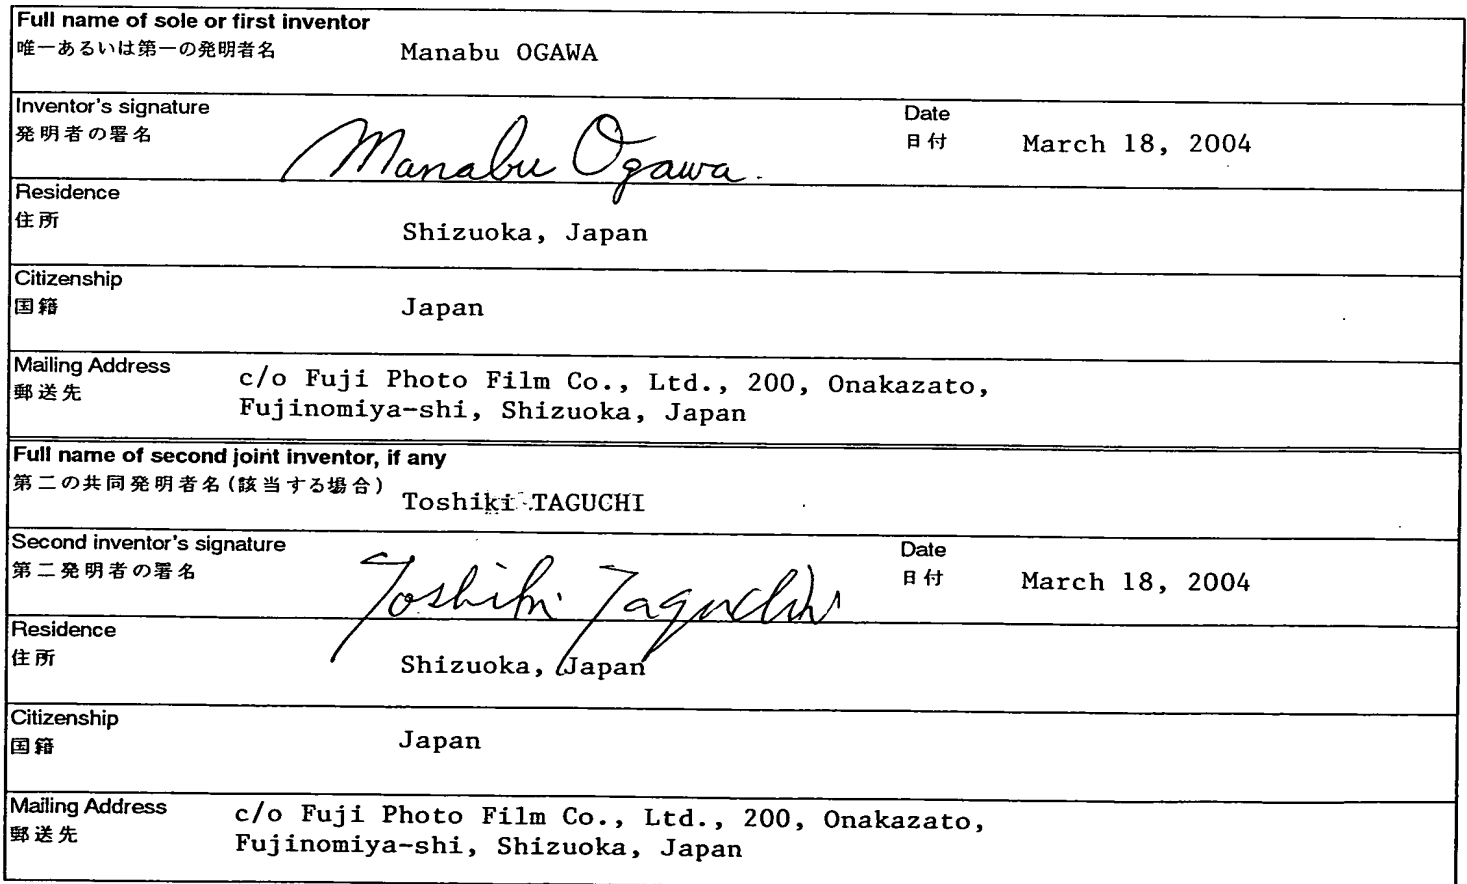 Full name of sole or first inventor
唯一あるいは第一の発明者名 Manabu OGAWA
Inventor's signature
発明者の署名 Manabu Ogawa.
Date
日付 March 18, 2004
Residence
住所
Shizuoka, Japan
Citizenship
国籍 Japan
Mailing Address
郵送先
c/o Fuji Photo Film Co., Ltd., 200, Onakazato,
Fujinomiya-shi, Shizuoka, Japan
Full name of second joint inventor, if any
第二の共同発明者名(該当する場合) Toshiki TAGUCHI
Second inventor's signature
第二発明者の署名 Toshiki Taguchi
Date
日付 March 18, 2004
Residence
住所 Shizuoka, Japan
Citizenship
国籍 Japan
Mailing Address
郵送先
c/o Fuji Photo Film Co., Ltd., 200, Onakazato,
Fujinomiya-shi, Shizuoka, Japan